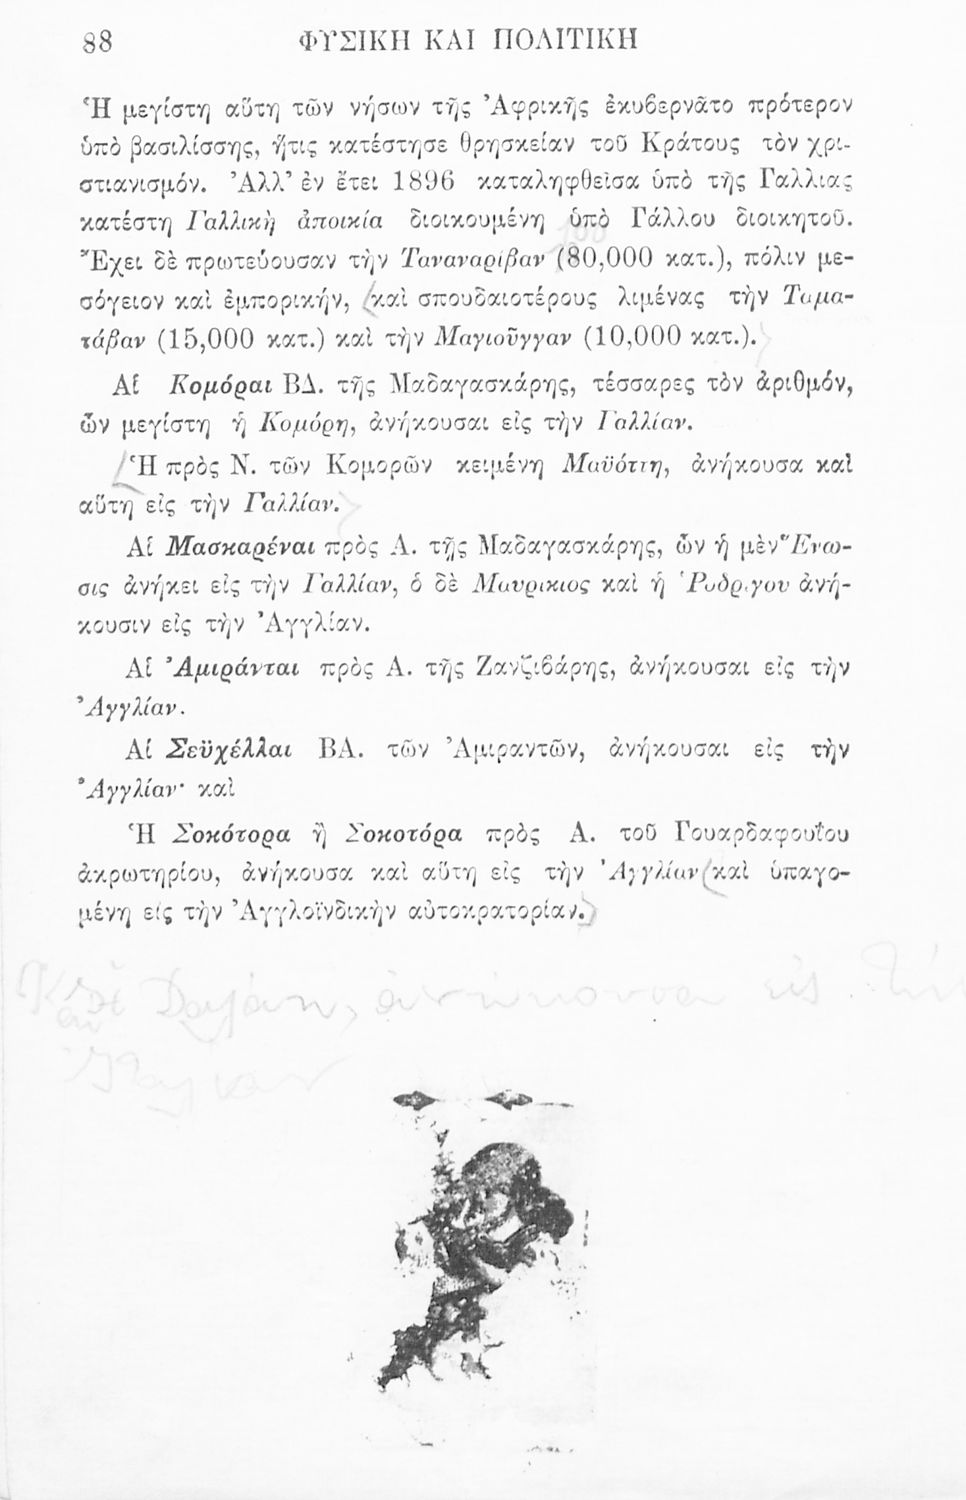 88 ΦΥΣΙΚΗ ΚΑΙ ΠΟΛΙΤΙΚΗ
Ἡ μεγίστη αὕτη τῶν νήσων τῆς Ἀφρικῆς ἐκυβερνᾶτο πρότερον
ὑπὸ βασιλίσσης, ἥτις κατέστησε θρησκείαν τοῦ Κράτους τὸν χρι-
στιανισμόν. Ἀλλ’ ἐν ἔτει 1896 καταληφθεῖσα ὑπὸ τῆς Γαλλίας
κατέστη Γαλλικὴ ἀποικία διοικουμένη ὑπὸ Γάλλου διοικητοῦ.
Ἔχει δὲ πρωτεύουσαν τὴν Ταναναρίβαν (80,000 κατ.), πόλιν με-
σόγειον καὶ ἐμπορικήν, καὶ σπουδαιοτέρους λιμένας τὴν Ταμα-
τάβαν (15,000 κατ.) καὶ τὴν Μαγιοῦγγαν (10,000 κατ.).
Αἱ Κομόραι ΒΔ. τῆς Μαδαγασκάρης, τέσσαρες τὸν ἀριθμόν,
ὧν μεγίστη ἡ Κομόρη, ἀνήκουσαι εἰς τὴν Γαλλίαν.
Ἡ πρὸς Ν. τῶν Κομορῶν κειμένη Μαϋόττη, ἀνήκουσα καὶ
αὕτη εἰς τὴν Γαλλίαν.
Αἱ Μασκαρέναι πρὸς Α. τῆς Μαδαγασκάρης, ὧν ἡ μὲν Ἕνω-
σις ἀνήκει εἰς τὴν Γαλλίαν, ὁ δὲ Μαυρίκιος καὶ ἡ Ῥοδρίγου ἀνή-
κουσιν εἰς τὴν Ἀγγλίαν.
Αἱ Ἀμιράνται πρὸς Α. τῆς Ζανζιβάρης, ἀνήκουσαι εἰς τὴν
Ἀγγλίαν.
Αἱ Σεϋχέλλαι ΒΑ. τῶν Ἀμιραντῶν, ἀνήκουσαι εἰς τὴν
Ἀγγλίαν· καὶ
Ἡ Σοκότορα ἢ Σοκοτόρα πρὸς Α. τοῦ Γουαρδαφουΐου
ἀκρωτηρίου, ἀνήκουσα καὶ αὕτη εἰς τὴν Ἀγγλίαν καὶ ὑπαγο-
μένη εἰς τὴν Ἀγγλοϊνδικὴν αὐτοκρατορίαν.
ἀνήκουσα εἰς τὴν